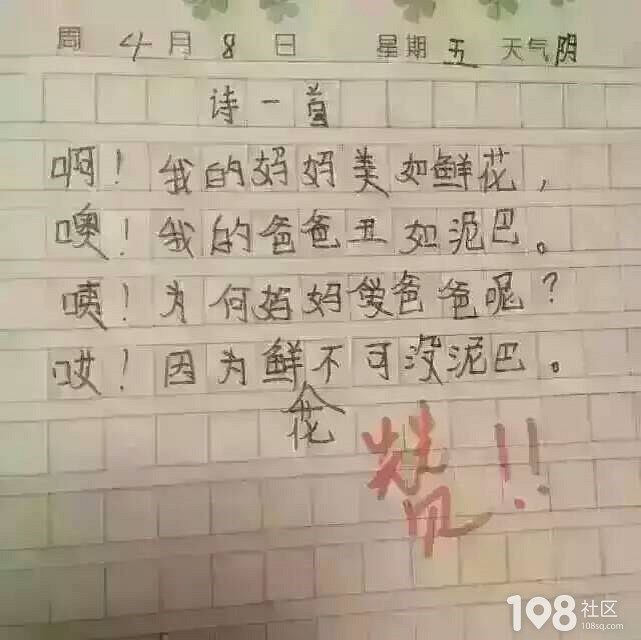 周 4月8日 星期五 天气阴
诗一首
啊！我的妈妈美如鲜花，
噢！我的爸爸丑如泥巴。
咦！为何妈妈爱爸爸呢？
哎！因为鲜花不可没泥巴。
赞！！
108社区
108sq.com